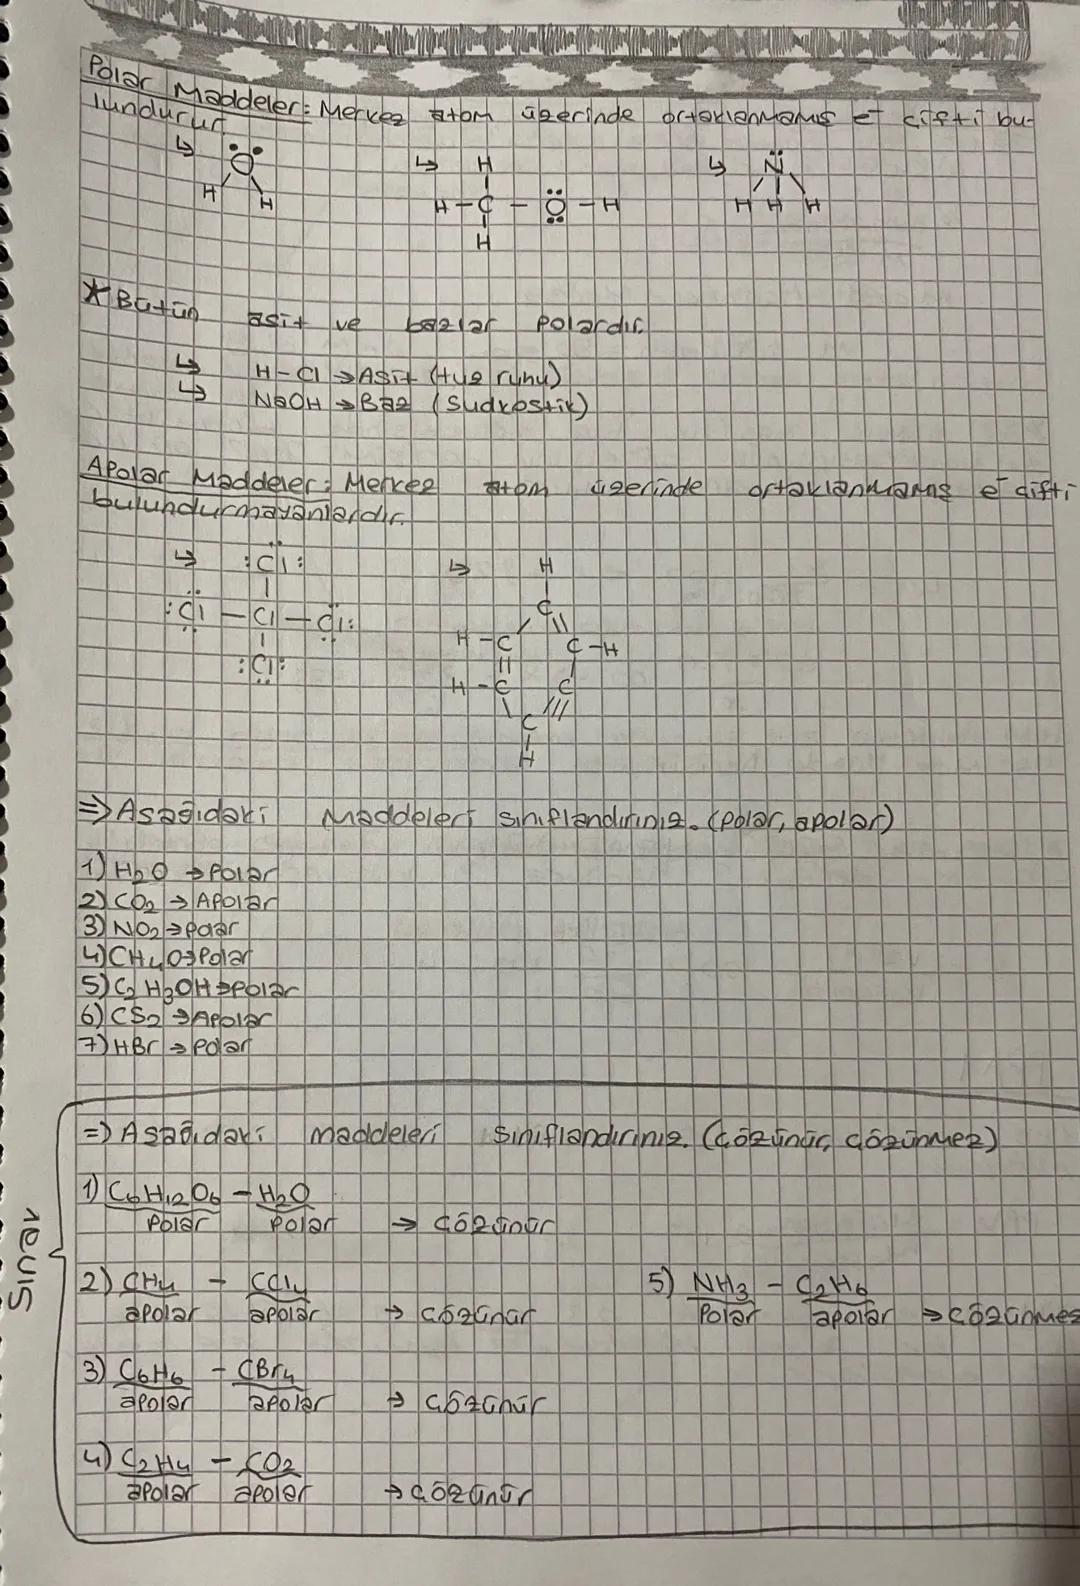 Polar Maddeler: Merkez atom üzerinde ortaklanmamış e⁻ çifti bu-
lundurur.
↳ O H H
↳ H H-C-O-H H
↳ N H H H
* Bütün asit ve bazlar polardır.
↳ H-Cl → Asit (tuz ruhu)
↳ NaOH → Baz (Sudkostik)
Apolar Maddeler: Merkez atom üzerinde ortaklanmamış e⁻ çifti
bulundurmayanlardır.
↳ :Cl:
:Cl - Cl - Cl:
:Cl:
↳ H
C
H-C C-H
H-C C
C
H
⇒ Aşağıdaki Maddeleri sınıflandırınız. (polar, apolar)
1) H₂O → Polar
2) CO₂ → Apolar
3) NO₂ → polar
4) CH₄O → Polar
5) C₂H₃OH → polar
6) CS₂ → Apolar
7) HBr → Polar
SINAV
⇒ Aşağıdaki maddeleri sınıflandırınız. (Çözünür, çözünmez)
1) C₆H₁₂O₆ - H₂O
Polar Polar → Çözünür
2) CH₄ - CCl₄
apolar apolar → Çözünür
3) C₆H₆ - CBr₄
apolar apolar → Çözünür
4) C₂H₄ - CO₂
apolar apolar → Çözünür
5) NH₃ - C₂H₆
Polar apolar → Çözünmez